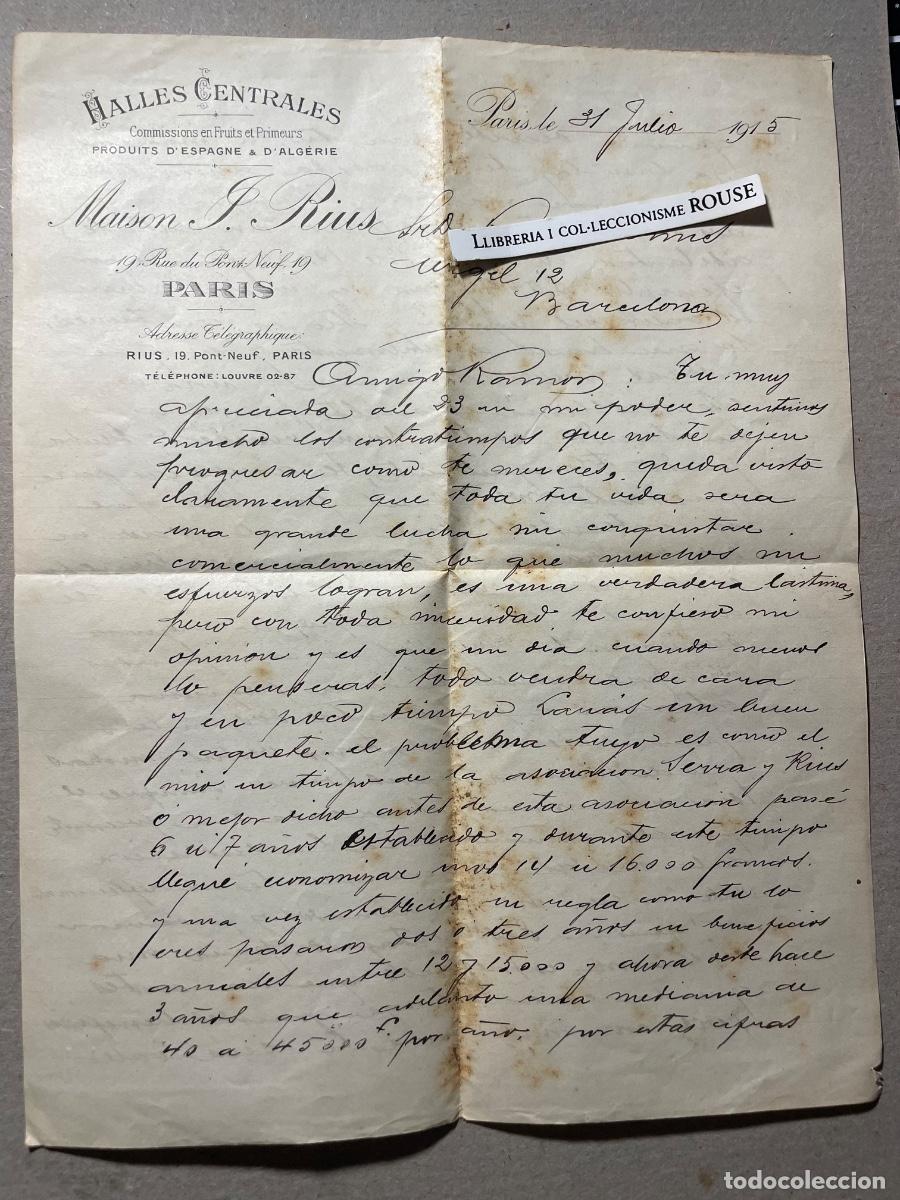 HALLES CENTRALES
Commissions en Fruits et Primeurs
PRODUITS D'ESPAGNE & D'ALGÉRIE
Maison J. Rius
19, Rue du Pont-Neuf, 19
PARIS
Adresse Télégraphique:
RIUS, 19, Pont-Neuf, PARIS
TÉLÉPHONE: LOUVRE 02-87
Paris, le 31 Julio 1915
LLIBRERIA I COL·LECCIONISME ROUSE
Urgel 12
Barcelona
Amigo Ramon: Tu muy
apreciada del 23 en mi poder, sentimos
mucho los contratiempos que no te dejen
progresar como te mereces, queda visto
claramente que toda tu vida sera
una grande lucha sin conquistar
comercialmente lo que muchos sin
esfuerzos logran, es una verdadera lástima,
pero con toda sinceridad te confieso mi
opinion y es que un dia cuando menos
lo penseras, todo vendra de cara
y en poco tiempo haras un buen
paquete. el problema tuyo es como el
mio en tiempo de la asociacion Serra y Rius
ó mejor dicho antes de esta asociacion pasé
6 ú 7 años establecido y durante este tiempo
llegué economizar unos 14 ú 16.000 francos.
y una vez establecido en regla como tu lo
eres pasaron dos o tres años en beneficios
anuales entre 12 y 15.000 y ahora deste hace
3 años que adelanto una mediana de
40 a 45000 f. por año, por estas cifras
todocoleccion